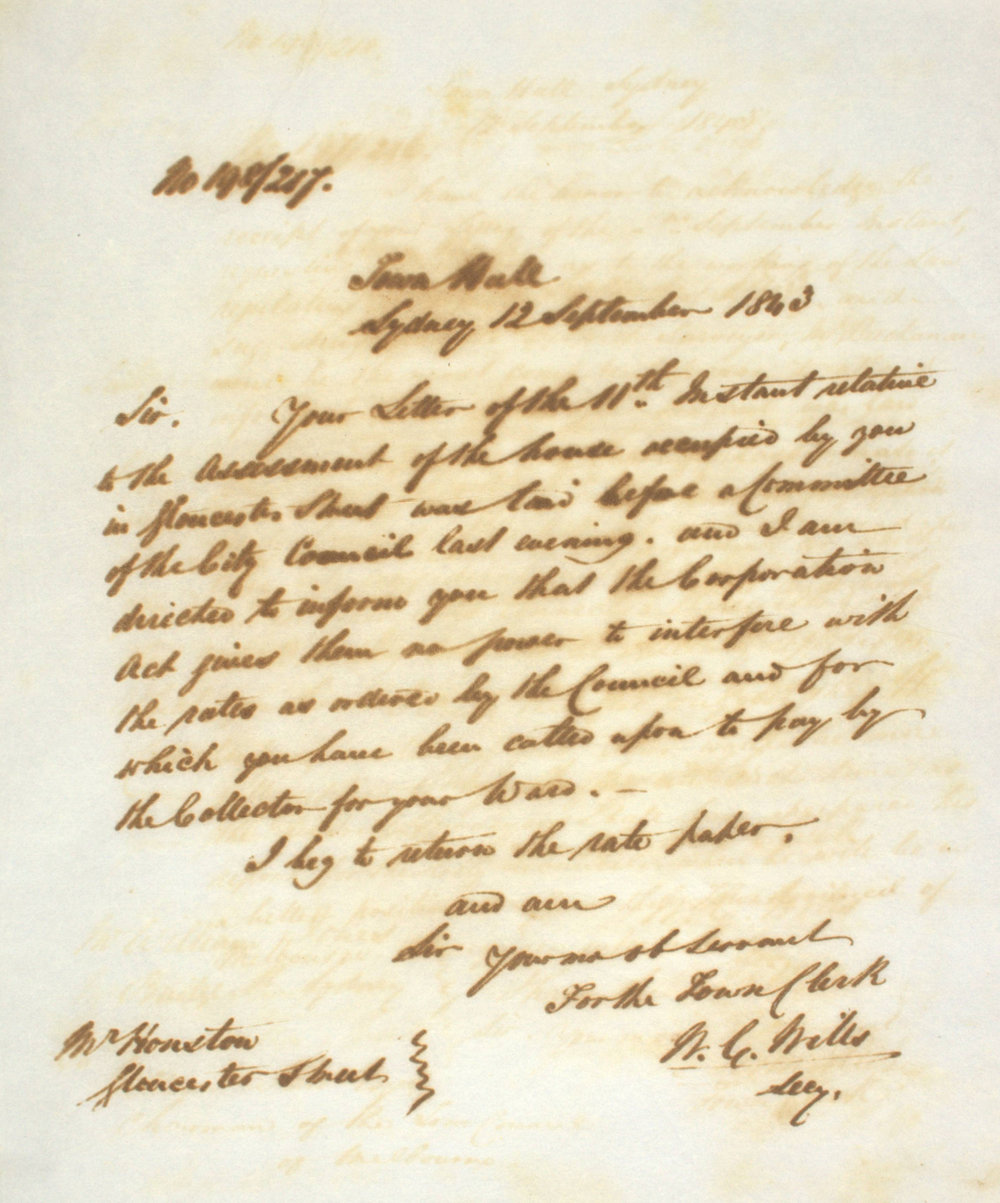 No 198/217.
Town Hall
Sydney 12 September 1843
Sir. Your Letter of the 11th. Instant relative
to the Assessment of the house occupied by you
in Gloucester Street was laid before a Committee
of the City Council last evening. and I am
directed to inform you that the Corporation
Act gives them no power to interfere with
the rates as ordered by the Council and for
which you have been called upon to pay by
the Collector for your Ward. —
I beg to return the rate paper.
and am
Sir Your mo ob Servant
For the Town Clerk
W. C. Wills
Secy.
Mr Houston
Gloucester Street